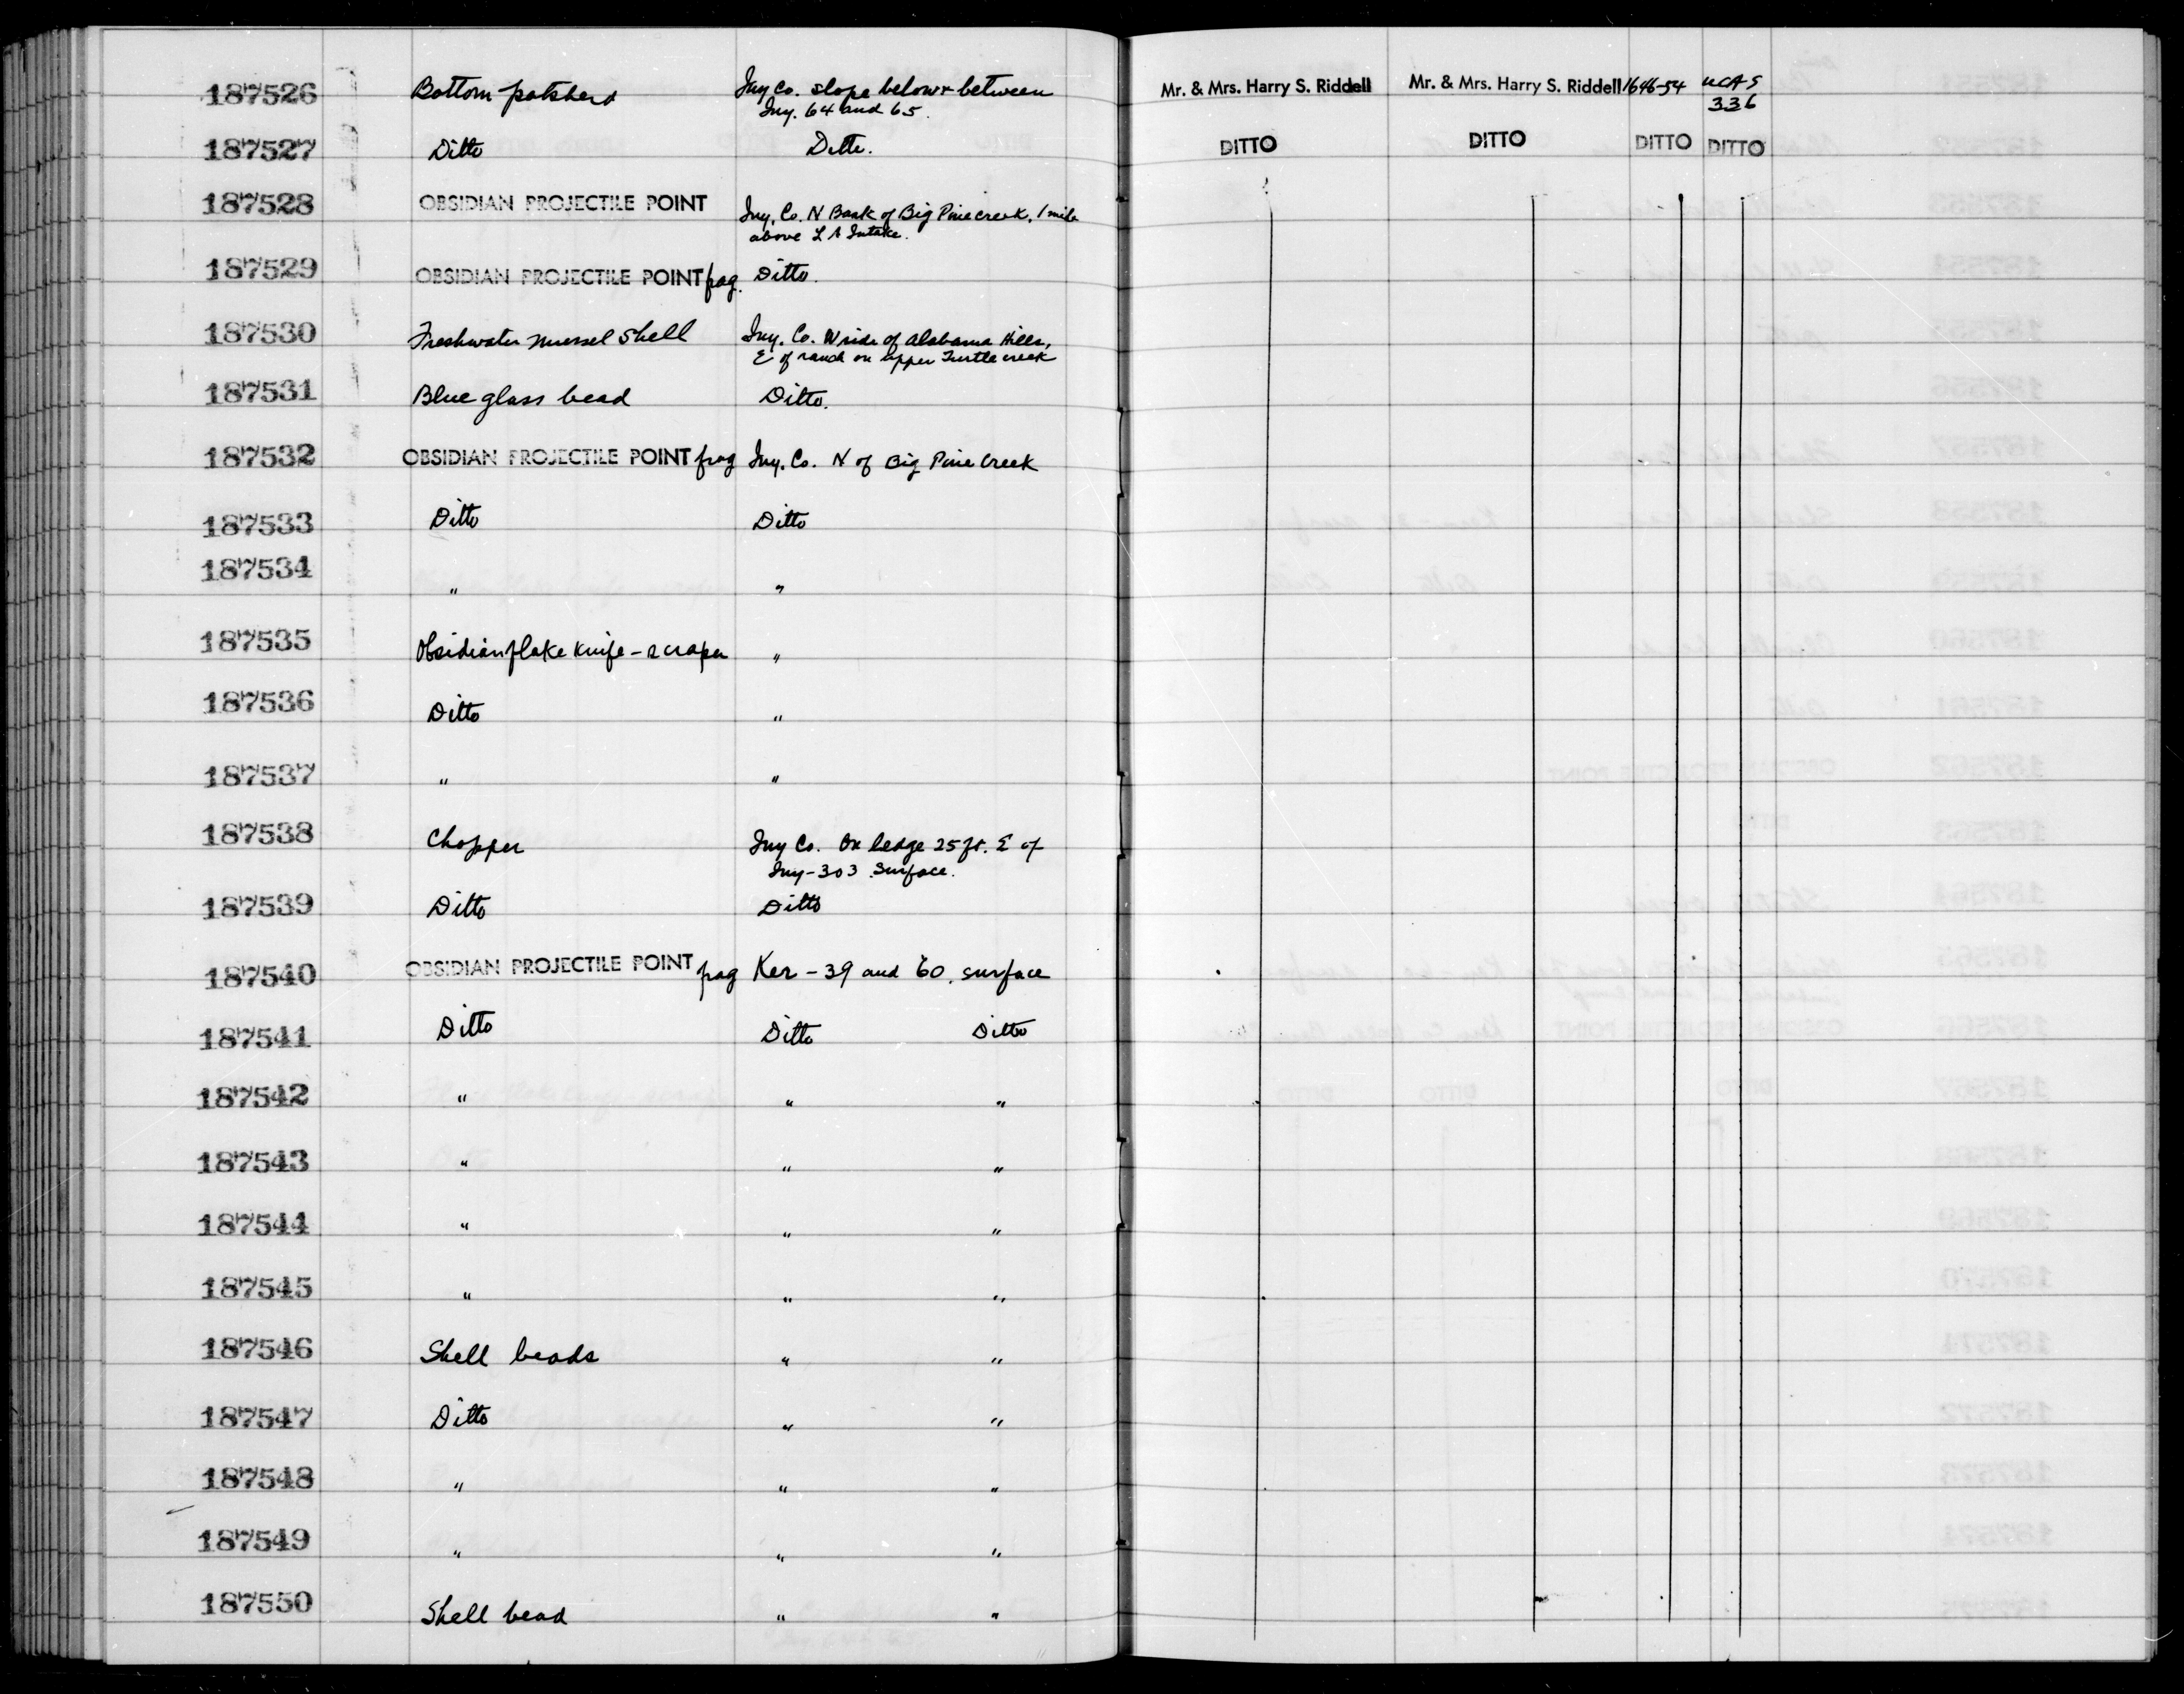 187526 Bottom potsherd Iny Co. slope below & between Mr. & Mrs. Harry S. Riddell Mr. & Mrs. Harry S. Riddell 1646-54 UCAS
Iny. 64 and 65. 336
187527 Ditto Ditto. DITTO DITTO DITTO DITTO
187528 OBSIDIAN PROJECTILE POINT Iny. Co. N Bank of Big Pine creek, 1 mile
above L A Intake.
187529 OBSIDIAN PROJECTILE POINT frag. Ditto.
187530 Freshwater mussel shell Iny. Co. W side of Alabama Hills,
E of ranch on upper Tuttle creek
187531 Blue glass bead Ditto.
187532 OBSIDIAN PROJECTILE POINT frag Iny. Co. N of Big Pine Creek
187533 Ditto Ditto
187534 " "
187535 Obsidian flake knife-scraper "
187536 Ditto "
187537 " "
187538 Chopper Iny Co. On ledge 25 ft. E of
Iny-303 Surface.
187539 Ditto Ditto
187540 OBSIDIAN PROJECTILE POINT frag Ker-39 and 60. surface
187541 Ditto Ditto Ditto
187542 " " "
187543 " " "
187544 " " "
187545 " " "
187546 Shell beads " "
187547 Ditto " "
187548 " " "
187549 " " "
187550 Shell bead " "